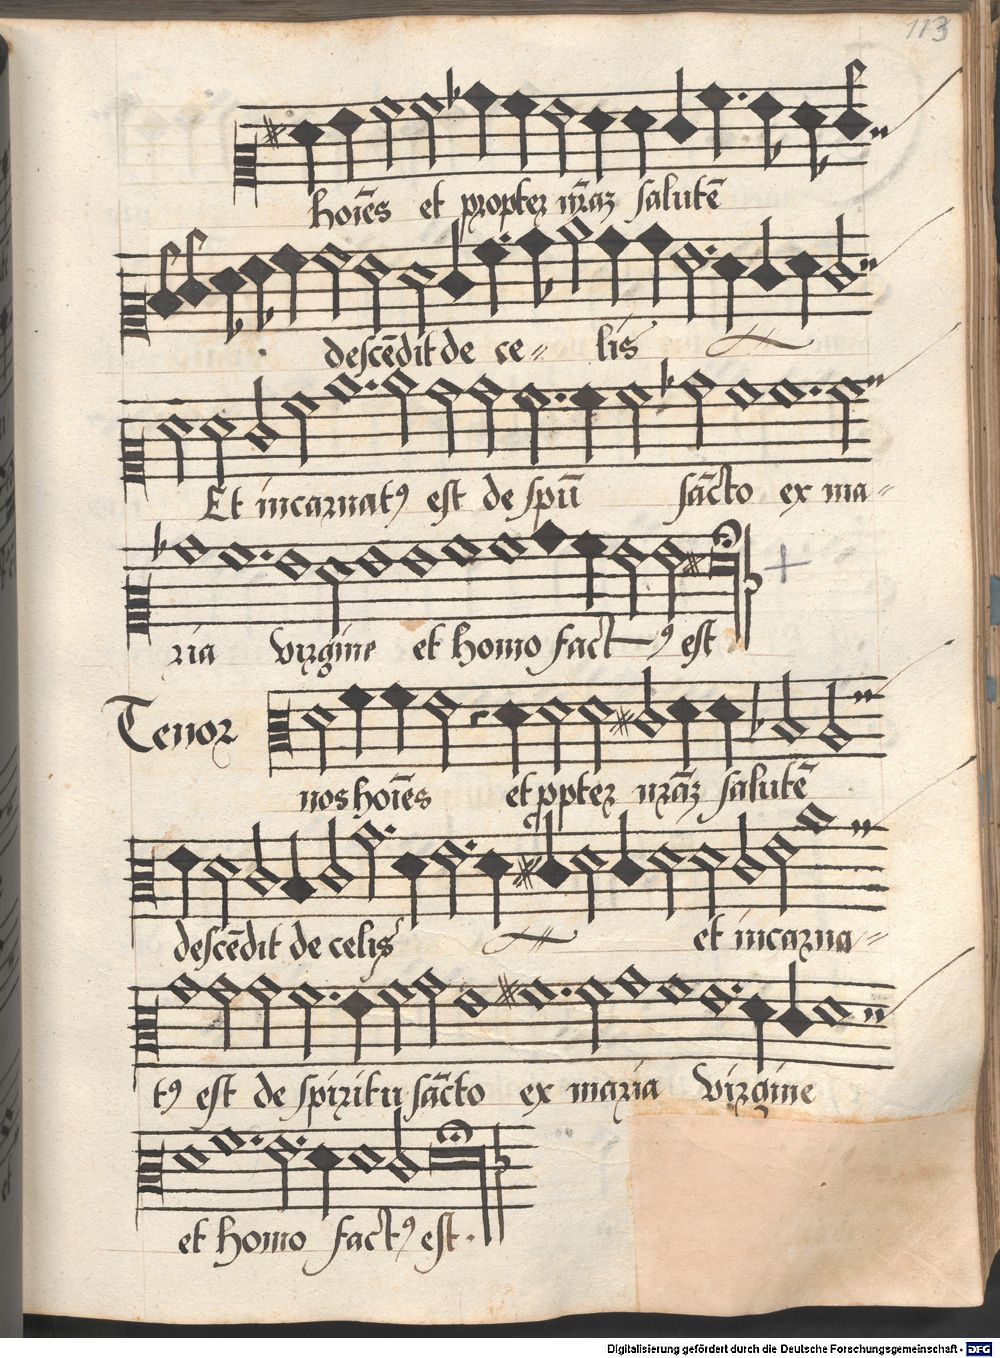 113
hoīes et propter nr̄az salutē
descēdit de ce- lis
Et incarnatꝰ est de spū sācto ex ma-
ria virgine et homo fact-ꝰ est
Tenor
nos hoīes et ꝓpter nr̄az salutē
descēdit de celis et incarna-
tꝰ est de spiritu sācto ex maria Virgine
et homo factꝰ est.
Digitalisierung gefördert durch die Deutsche Forschungsgemeinschaft - DFG